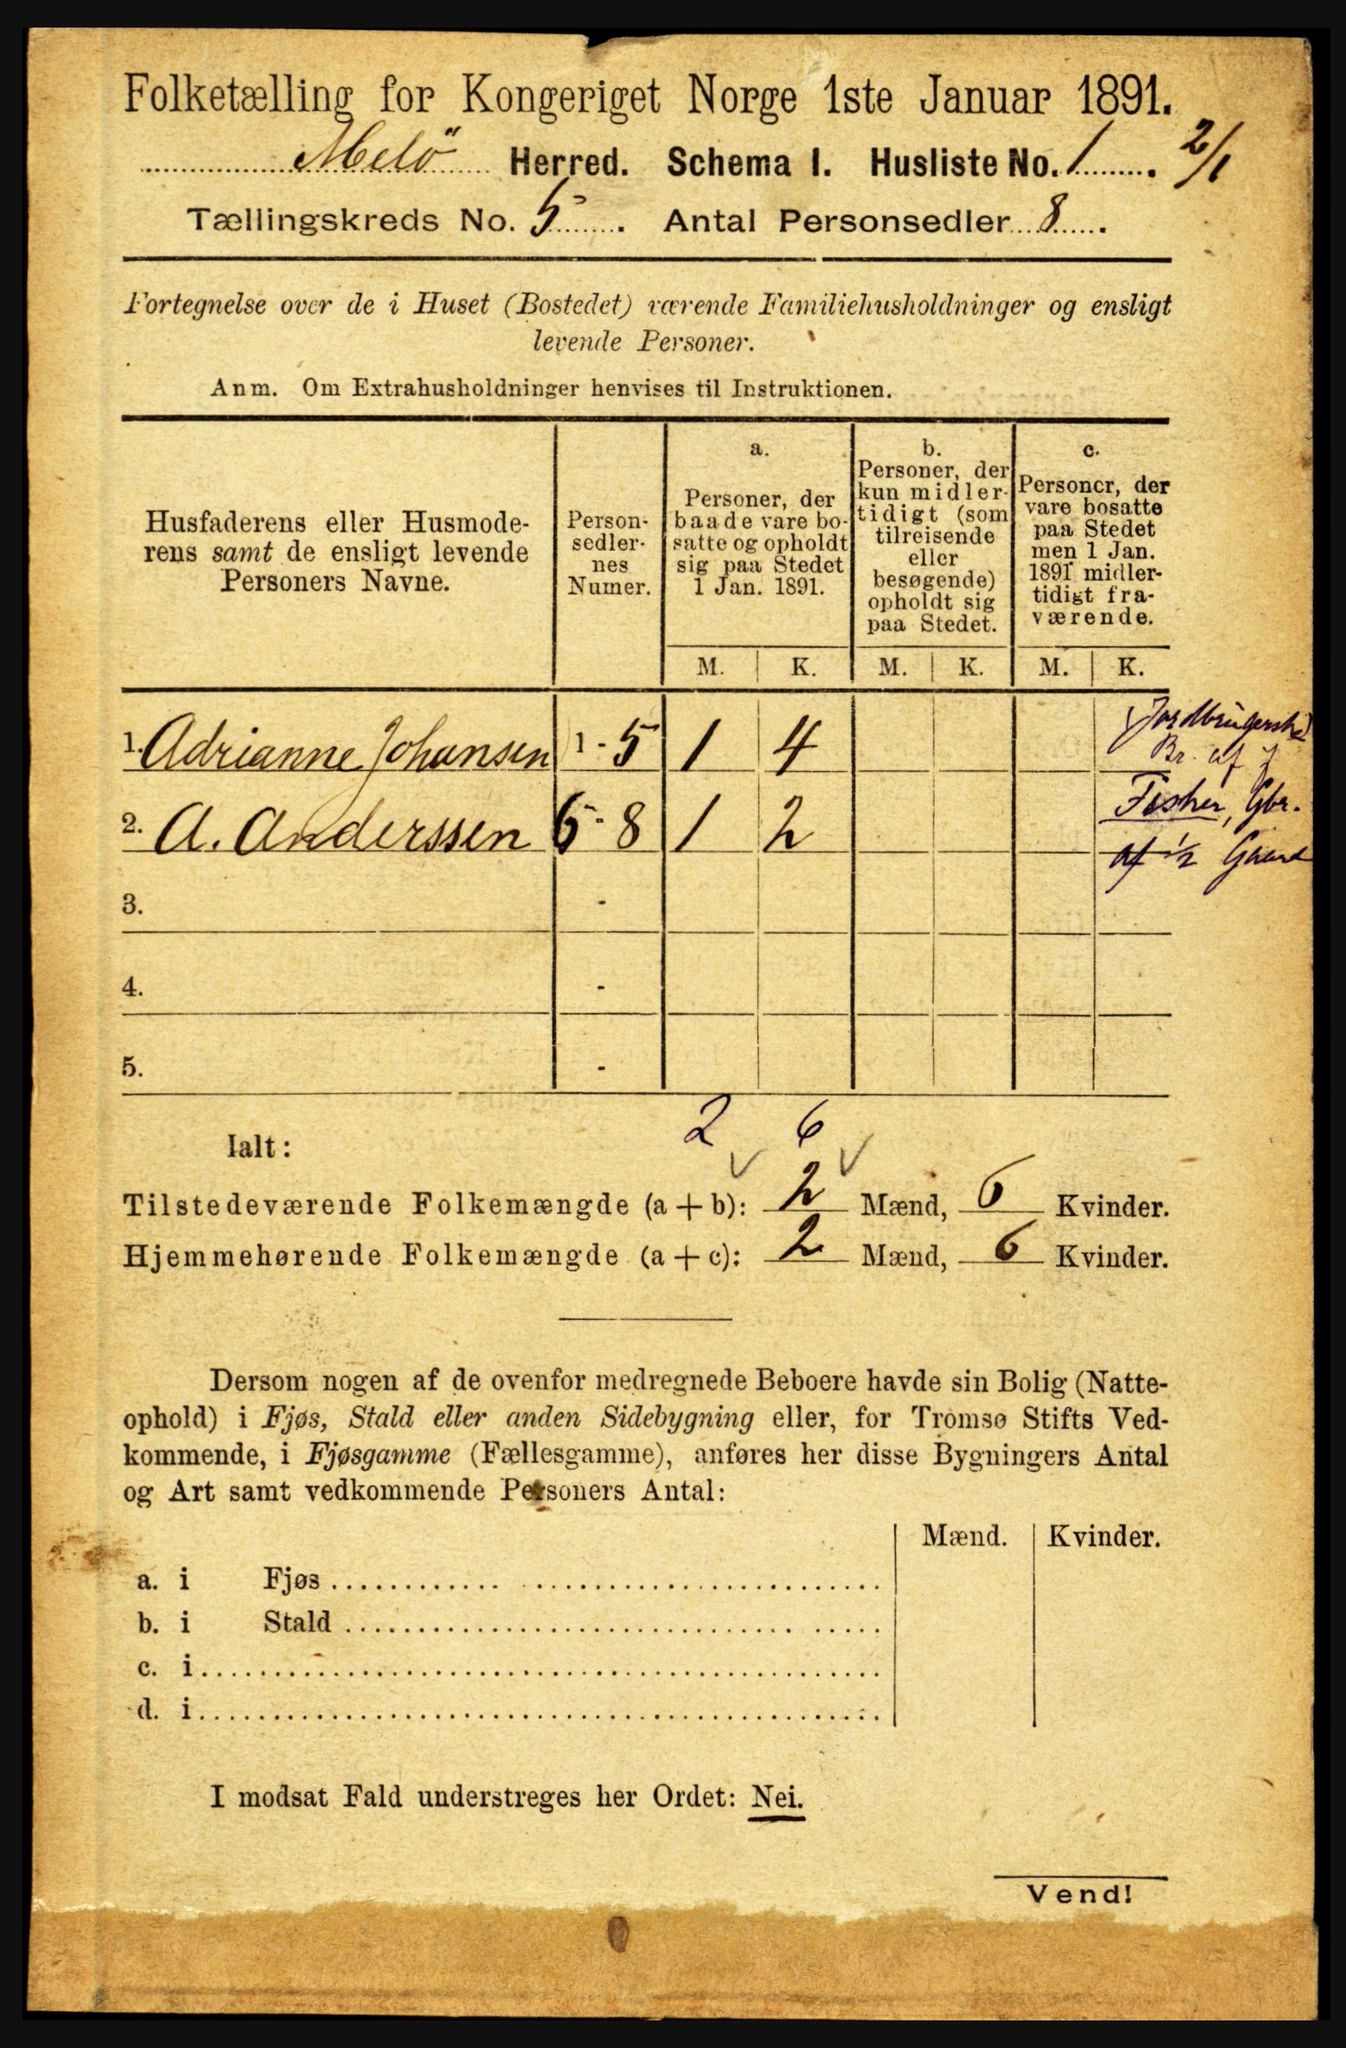 Folketælling for Kongeriget Norge 1ste Januar 1891.
Melö Herred. Schema I. Husliste No. 1. 2/1
Tællingskreds No. 5. Antal Personsedler 8.
Fortegnelse over de i Huset (Bostedet) værende Familiehusholdninger og ensligt
levende Personer.
Anm. Om Extrahusholdninger henvises til Instruktionen.
Husfaderens eller Husmode-
rens samt de ensligt levende
Personers Navne.
Person-
sedler-
nes
Numer.
a.
Personer, der
baade vare bo-
satte og opholdt
sig paa Stedet
1 Jan. 1891.
b.
Personer, der
kun midler-
tidigt (som
tilreisende
eller
besøgende)
opholdt sig
paa Stedet.
c.
Personer, der
vare bosatte
paa Stedet
men 1 Jan.
1891 midler-
tidigt fra-
værende.
M. K. M. K. M. K.
1. Adrianne Johansen 1 - 5 1 4
Br. af
2. A. Anderssen 6 - 8 1 2
Fisker, Gbr.
af 1/2 Gaard
3. -
4. -
5. -
2 6
Ialt:
Tilstedeværende Folkemængde (a + b): 2 Mænd, 6 Kvinder.
Hjemmehørende Folkemængde (a + c): 2 Mænd, 6 Kvinder.
Dersom nogen af de ovenfor medregnede Beboere havde sin Bolig (Natte-
ophold) i Fjøs, Stald eller anden Sidebygning eller, for Tromsø Stifts Ved-
kommende, i Fjøsgamme (Fællesgamme), anføres her disse Bygningers Antal
og Art samt vedkommende Personers Antal:
Mænd. Kvinder.
a. i Fjøs
b. i Stald
c. i
d. i
I modsat Fald understreges her Ordet: Nei.
Vend!